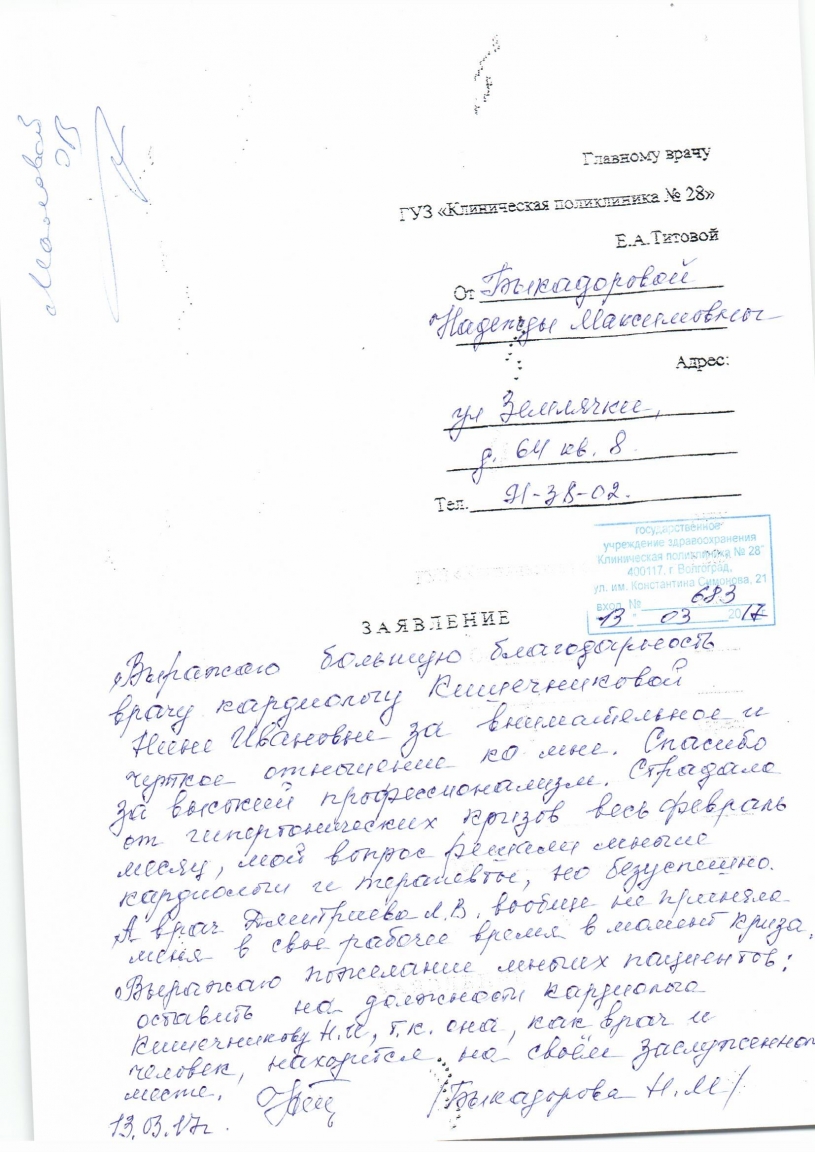 Главному врачу
ГУЗ «Клиническая поликлиника № 28»
Е.А.Титовой
От Быкадоровой
Надежды Максимовны
Адрес:
ул Землячки,
д. 64 кв. 8.
Тел. 91-38-02.
государственное
учреждение здравоохранения
"Клиническая поликлиника № 28"
400117, г. Волгоград,
ул. им. Константина Симонова, 21
вход. № 683
13 " 03 2017
ЗАЯВЛЕНИЕ
Выражаю большую благодарность
врачу кардиологу Кишечниковой
Нине Ивановне за внимательное и
чуткое отношение ко мне. Спасибо
за высокий профессионализм. Страдала
от гипертонических кризов весь февраль
месяц, мой вопрос решали многие
кардиологи и терапевты, но безуспешно.
А врач Дмитриева Л.В. вообще не приняла
меня в свое рабочее время в момент криза.
Выражаю пожелание многих пациентов:
оставить на должности кардиолога
Кишечникову Н.И, т.к. она, как врач и
человек, находится на своём заслуженном
месте. /Быкадорова Н.М/
13.03.17г.